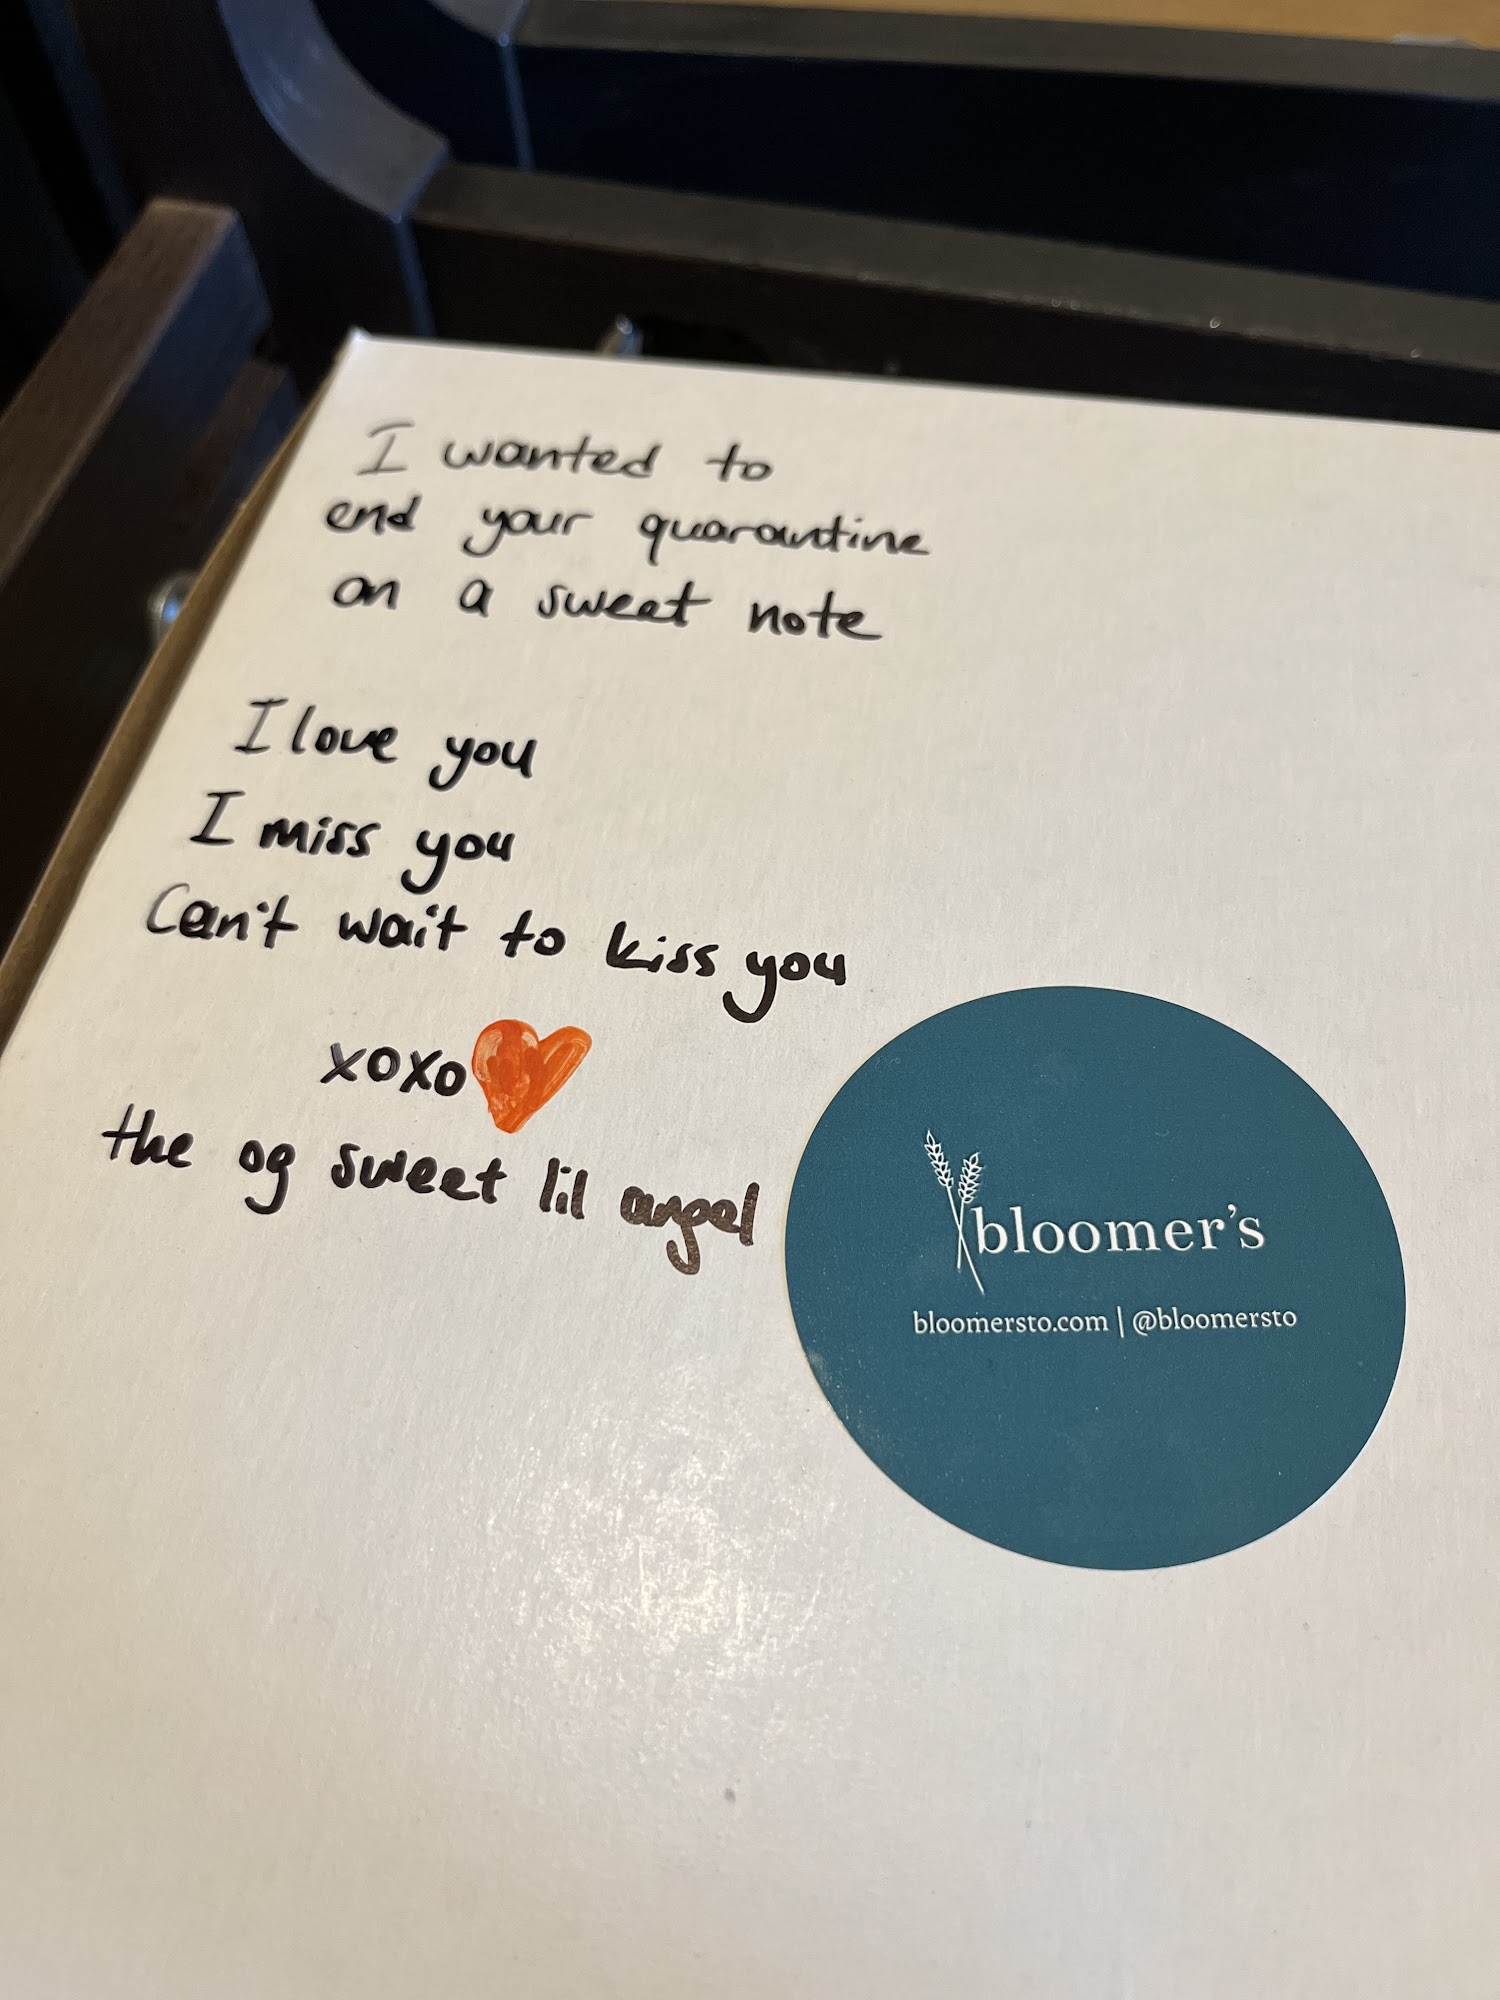 I wanted to
end your quarantine
on a sweet note
I love you
I miss you
Can't wait to kiss you
xoxo
the og sweet lil angel
bloomer's
bloomersto.com | @bloomersto